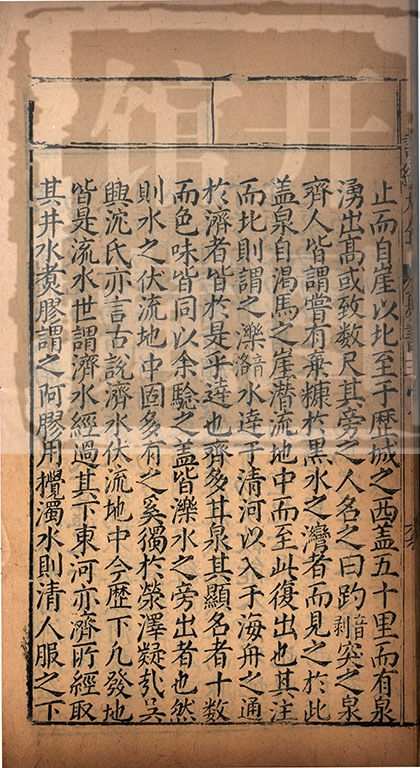 止而自崖以北至于歴城之西蓋五十里而有泉
湧出高或致数尺其旁之人名之曰趵音剥突之泉
齊人皆謂嘗有棄糠於黒水之灣者而見之於此
盖泉自渴馬之崖潜流地中而至此復出也其注
而北則謂之濼音洛水達于清河以入于海舟之通
於濟者皆於是乎達也齊多甘泉其顯名者十数
而色味皆同以余驗之盖皆濼水之旁出者也然
則水之伏流地中固多有之奚獨於滎澤疑㢤吴
興沈氏亦言古說濟水伏流地中今歴下凡發地
皆是流水世謂濟水經過其下東河亦濟所經取
其井水煑膠謂之阿膠用攪濁水則清人服之下